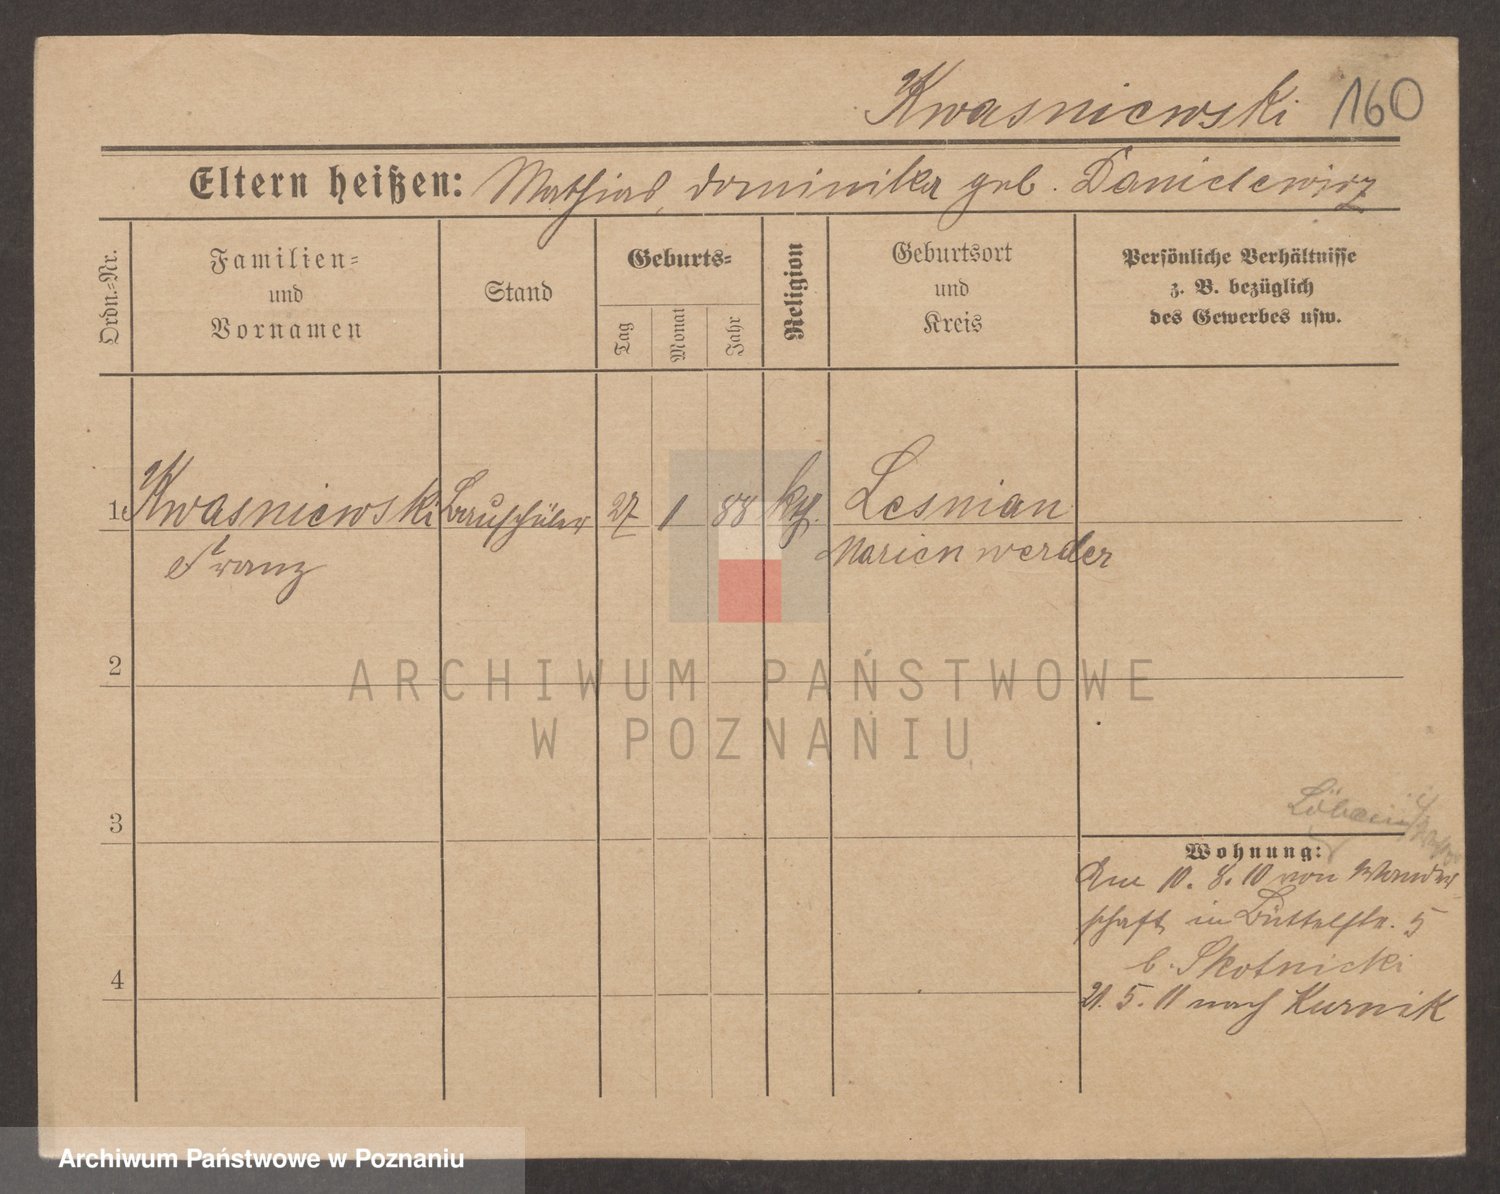 Kwasniewski 160
Eltern heißen: Mathias, Dominika geb. Danielewicz
Ordn.-Nr.
Familien-
und
Vornamen
Stand
Geburts-
Tag
Monat
Jahr
Religion
Geburtsort
und
Kreis
Persönliche Verhältnisse
z. B. bezüglich
des Gewerbes usw.
1 Kwasniewski Bauschüler 27 1 88 kt. Lesnian
Franz Marienwerder
2
ARCHIWUM PAŃSTWOWE
W POZNANIU
3
Wohnung:
Am 10. 8. 10 von Wander
schaft in Büttelstr. 5
b. Skotnicki
21. 5. 11 nach Kurnik
4
Archiwum Państwowe w Poznaniu